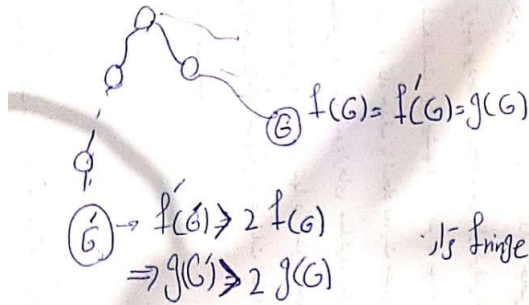 G f(G) = f'(G) = g(G)
G' → f'(G') ≥ 2 f(G)
⇒ g(G') ≥ 2 g(G)
fringe